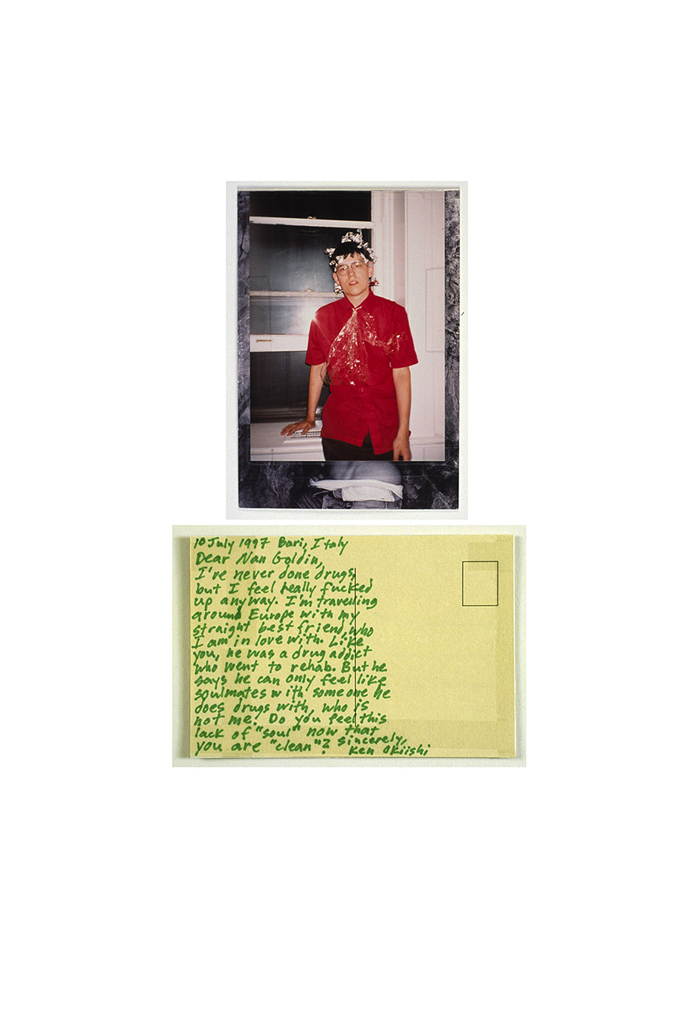 10 July 1997 Bari, Italy
Dear Nan Goldin,
I've never done drugs,
but I feel really fucked
up anyway. I'm travelling
around Europe with my
straight best friend, who
I am in love with. Like
you, he was a drug addict
who went to rehab. But he
says he can only feel like
soulmates with someone he
does drugs with, who is
not me. Do you feel this
lack of "soul" now that
you are "clean"? Sincerely,
Ken Okiishi